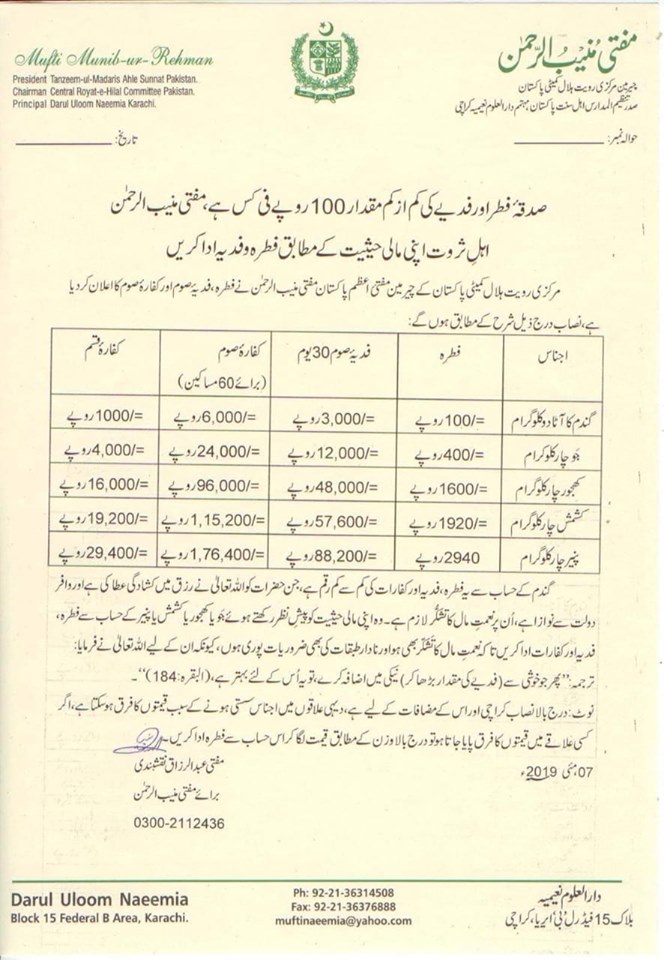 Mufti Munib-ur-Rehman
President Tanzeem-ul-Madaris Ahle Sunnat Pakistan.
Chairman Central Royat-e-Hilal Committee Pakistan.
Principal Darul Uloom Naeemia Karachi.
مفتی منیب الرحمٰن
چیرمین مرکزی رویت ہلال کمیٹی پاکستان
صدر تنظیم المدارس اہل سنت پاکستان مہتمم دارالعلوم نعیمیہ کراچی
تاریخ:
حوالہ نمبر:
صدقۂ فطر اور فدیے کی کم از کم مقدار 100 روپے فی کس ہے، مفتی منیب الرحمٰن
اہلِ ثروت اپنی مالی حیثیت کے مطابق فطرہ و فدیہ ادا کریں
مرکزی رویت ہلال کمیٹی پاکستان کے چیرمین مفتی اعظم پاکستان مفتی منیب الرحمٰن نے فطرہ، فدیۂ صوم اور کفارۂ صوم کا اعلان کر دیا
ہے، نصاب درج ذیل شرح کے مطابق ہوں گے:
اجناس فطرہ فدیۂ صوم 30 یوم کفارۂ صوم (برائے 60 مساکین) کفارۂ قسم
گندم کا آٹا دو کلوگرام 100/=روپے 3,000/=روپے 6,000/=روپے 1000/=روپے
جَو چار کلوگرام 400/=روپے 12,000/=روپے 24,000/=روپے 4,000/=روپے
کھجور چار کلوگرام 1600/=روپے 48,000/=روپے 96,000/=روپے 16,000/=روپے
کشمش چار کلوگرام 1920/=روپے 57,600/=روپے 1,15,200/=روپے 19,200/=روپے
پنیر چار کلوگرام 2940روپے 88,200/=روپے 1,76,400/=روپے 29,400/=روپے
گندم کے حساب سے یہ فطرہ، فدیہ اور کفارات کی کم سے کم رقم ہے، جن حضرات کو اللہ تعالیٰ نے رزق میں کشادگی عطا کی ہے اور وافر
دولت سے نوازا ہے، اُن پر نعمتِ مال کا تشکُّر لازم ہے۔ وہ اپنی مالی حیثیت کو پیشِ نظر رکھتے ہوئے جَو یا کھجور یا کشمش یا پنیر کے حساب سے فطرہ،
فدیہ اور کفارات ادا کریں تاکہ نعمتِ مال کا تشکُّر بھی ہو اور نادار طبقات کی بھی ضروریات پوری ہوں، کیونکہ ان کے لیے اللہ تعالیٰ نے فرمایا:
ترجمہ: ”پھر جو خوشی سے (فدیے کی مقدار بڑھا کر) نیکی میں اضافہ کرے، تو یہ اُس کے لئے بہتر ہے، (البقرہ:184)“۔
نوٹ: درج بالا نصاب کراچی اور اس کے مضافات کے لیے ہے، دیہی علاقوں میں اجناس سستی ہونے کے سبب قیمتوں کا فرق ہو سکتا ہے، اگر
کسی علاقے میں قیمتوں کا فرق پایا جاتا ہو تو درج بالا وزن کے مطابق قیمت لگا کر اس حساب سے فطرہ ادا کریں۔
مفتی عبدالرزاق نقشبندی
07 مئی 2019ء
برائے مفتی منیب الرحمٰن
0300-2112436
Darul Uloom Naeemia
Block 15 Federal B Area, Karachi.
Ph: 92-21-36314508
Fax: 92-21-36376888
muftinaeemia@yahoo.com
دارالعلوم نعیمیہ
بلاک 15 فیڈرل بی ایریا، کراچی